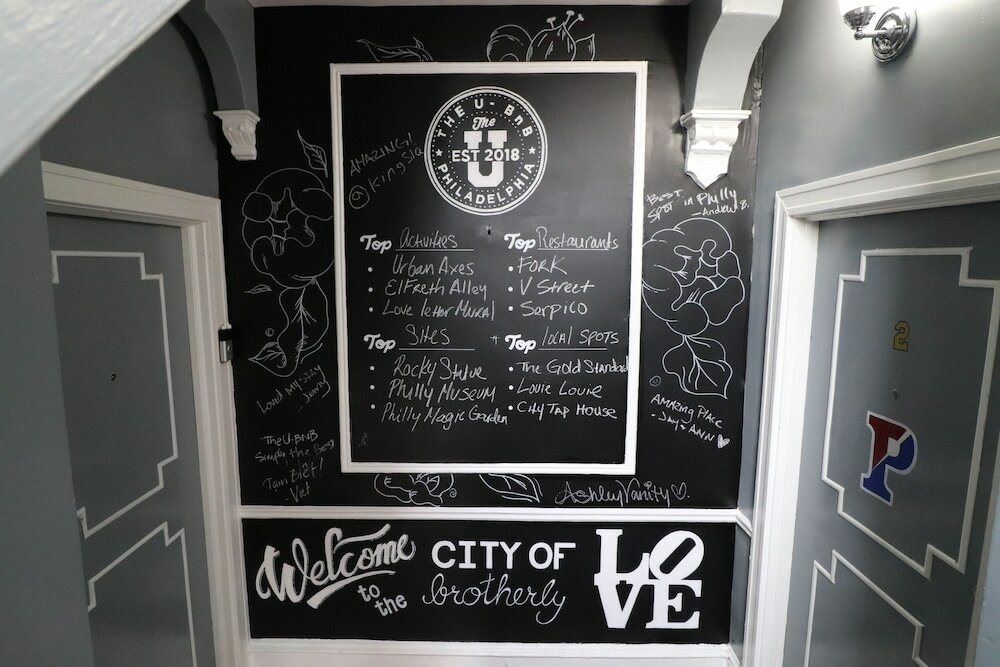 THE U-BnB
The
U
EST 2018
PHILADELPHIA
AMAZING!
BEST
SPOT in Philly
- Andrew B.
Top Activities
• Urban Axes
• ElFreth Alley
• Love letter Mural
Top Restaurants
• FORK
• V Street
• Serpico
Top Sites
• Rocky Statue
• Philly Museum
• Philly Magic Garden
+ Top local SPOTS
• The Gold Standard
• Louie Louie
• City Tap House
Loved my stay
- Jenny
The U-BNB
Simply the Best
Tam Biêt!
- Viet
AMAZING PLACE
- Jay + ANN
AshleyVanity
Welcome
to the
CITY OF
brotherly
LOVE
2
P